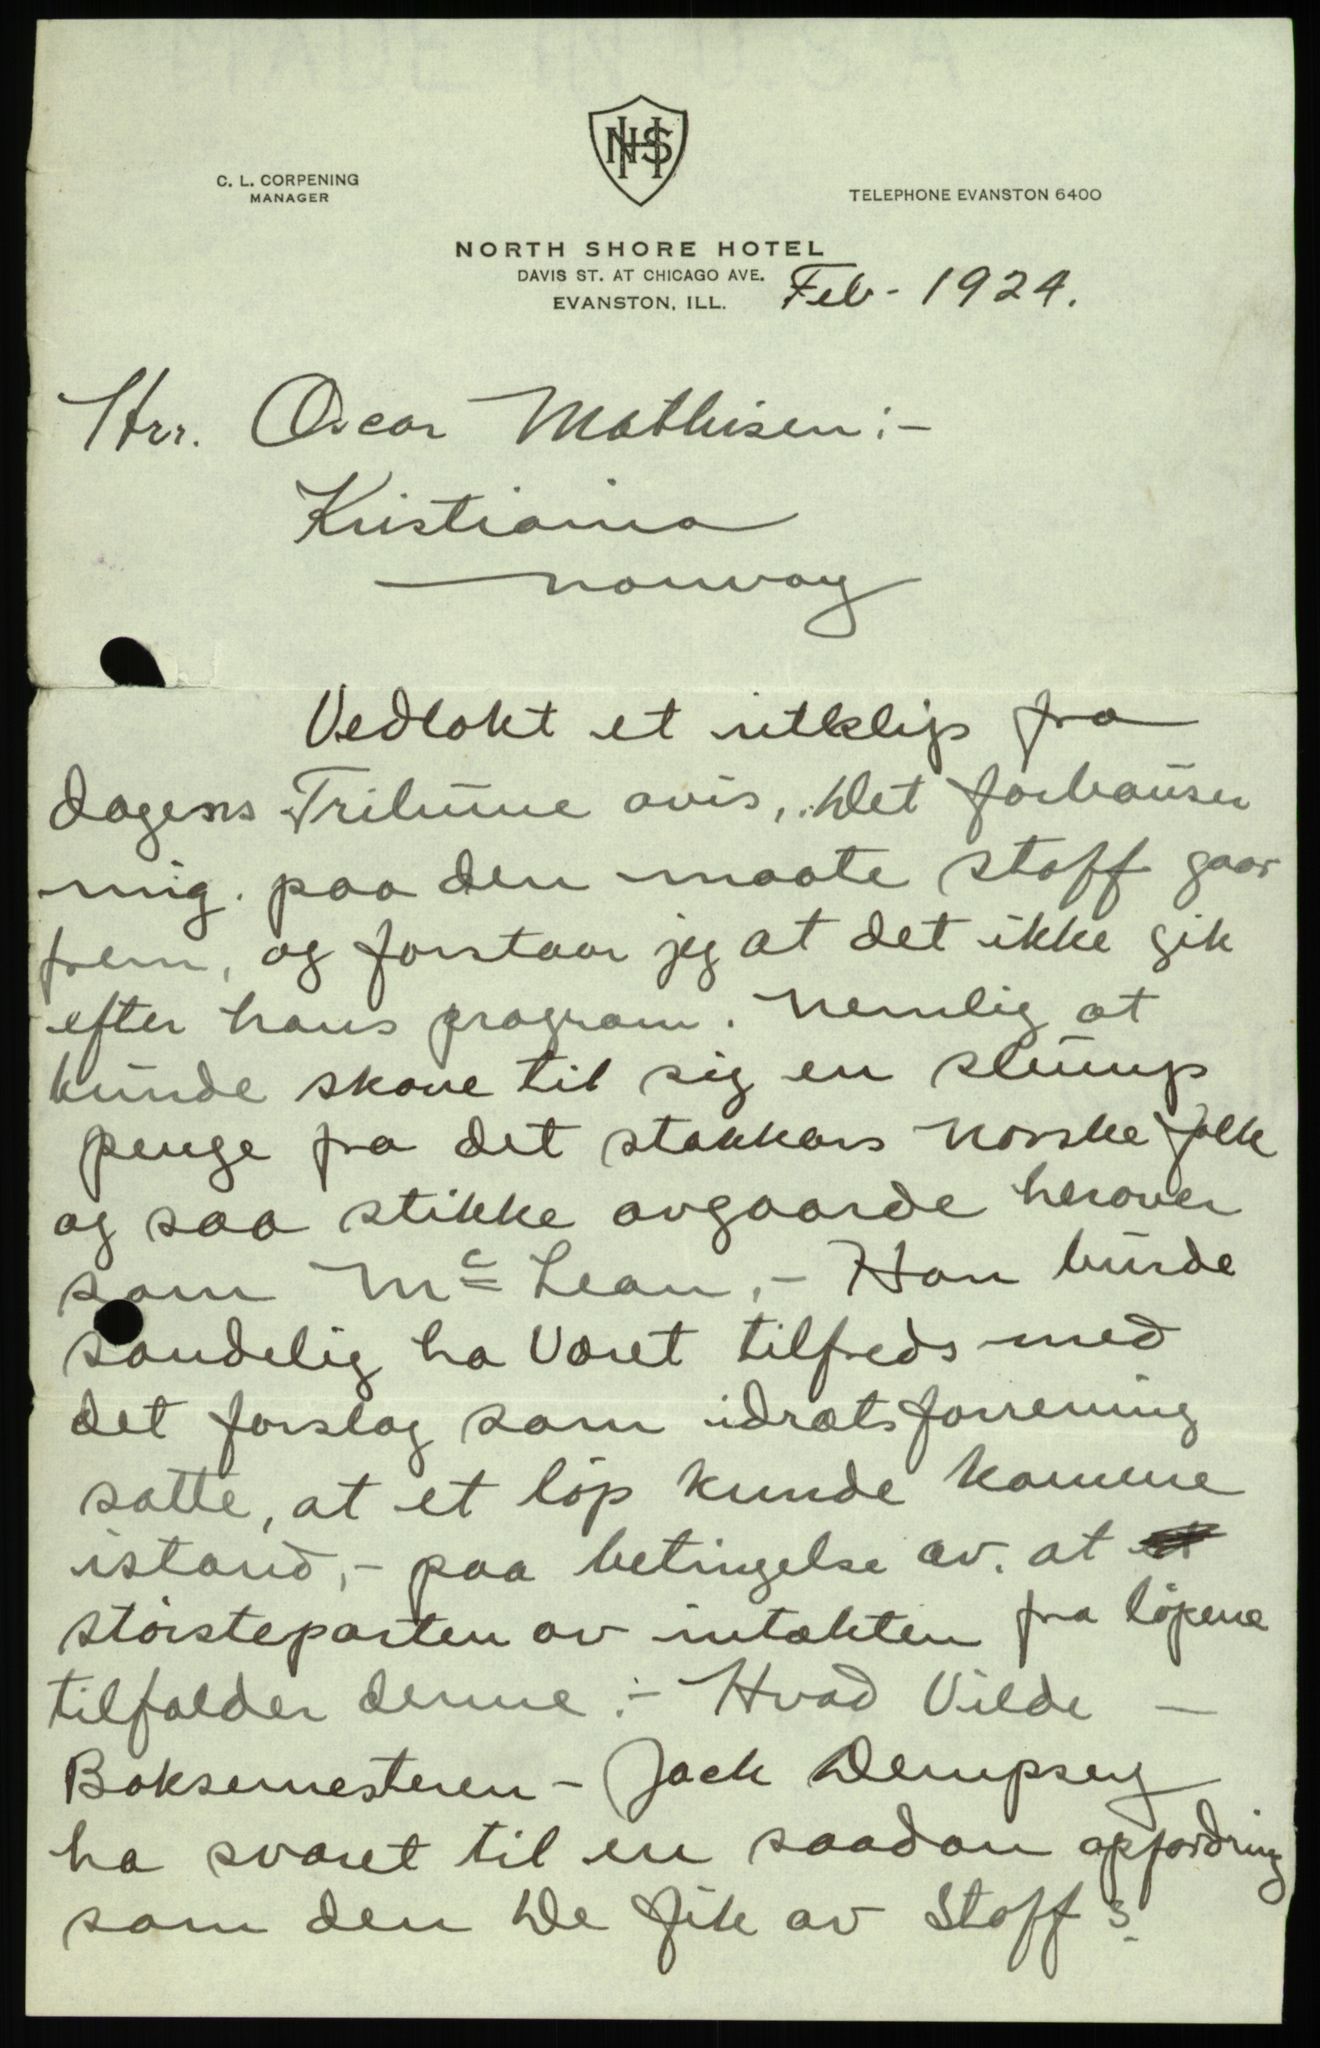 NHS
C. L. CORPENING
MANAGER
TELEPHONE EVANSTON 6400
NORTH SHORE HOTEL
DAVIS ST. AT CHICAGO AVE.
EVANSTON, ILL.
Feb - 1924.
Hrr. Oscar Mathisen :-
Kristiania
Norway
Vedlakt et utklip fra
dagens Tribune avis, Det forbauser
mig. paa den maate Staff gaar
frem, og forstaar jeg at det ikke gik
efter hans program. Nemlig at
kunde skave til sig en slump
penge fra det stakkars Norske folk
og saa stikke avgaarde herover
som Mc Lean, - Han burde
sandelig ha været tilfreds med
det forslag som idrætsforrening
satte, at et løp kunde komme
istand, - paa betingelse av. at
størsteparten av intækten fra løpene
tilfalder denne :- Hvad Vilde -
Boksemesteren - Jack Dempsey
ha svaret til en saadan opfordring
som den De fik av Staff?